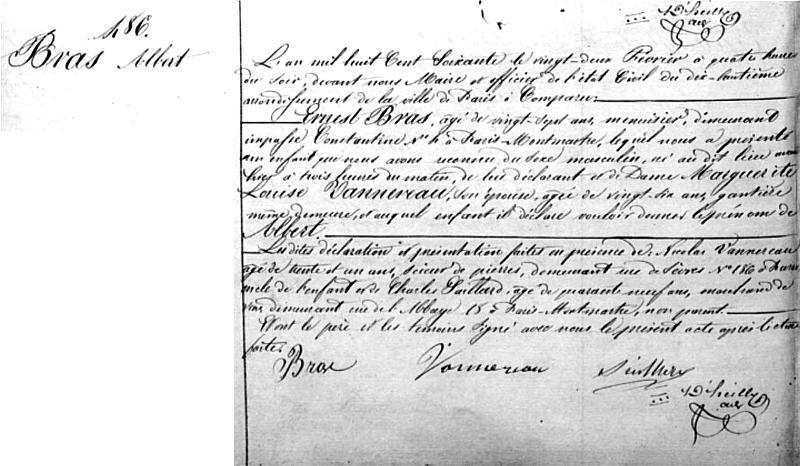 486.
Bras Albert
L'an mil huit Cent Soixante le vingt-deux Fevrier à quatre heures
du soir, devant nous Maire et officier de l'état Civil du dix-huitième
arrondissement de la ville de Paris à Comparu:
Ernest Bras, agé de vingt sept ans, menuisier, demeurant
impasse Constantine N° 4 à Paris-Montmartre, lequel nous a présenté
un enfant que nous avons reconnu du sexe masculin, né au dit lieu avant
hier à trois heures du matin, de lui déclarant et de Dame Marguerite
Louise Vannereau, son épouse, agée de vingt six ans, gantière
même demeure, et auquel enfant il déclare vouloir donner le prénom de
Albert.
Lesdites déclaration et présentation faites en présence de: Nicolas Vannereau
agé de trente et un ans, Scieur de pierres, demeurant rue de Sèvres N° 186 à Paris
oncle de l'enfant et de Charles agé de quarante neuf ans, marchand de
vins, demeurant rue de l'Abbaye 15 à Paris-Montmartre, non parent.
Et ont le père et les témoins signé avec nous le présent acte après lecture
faite.
Bras Vannereau